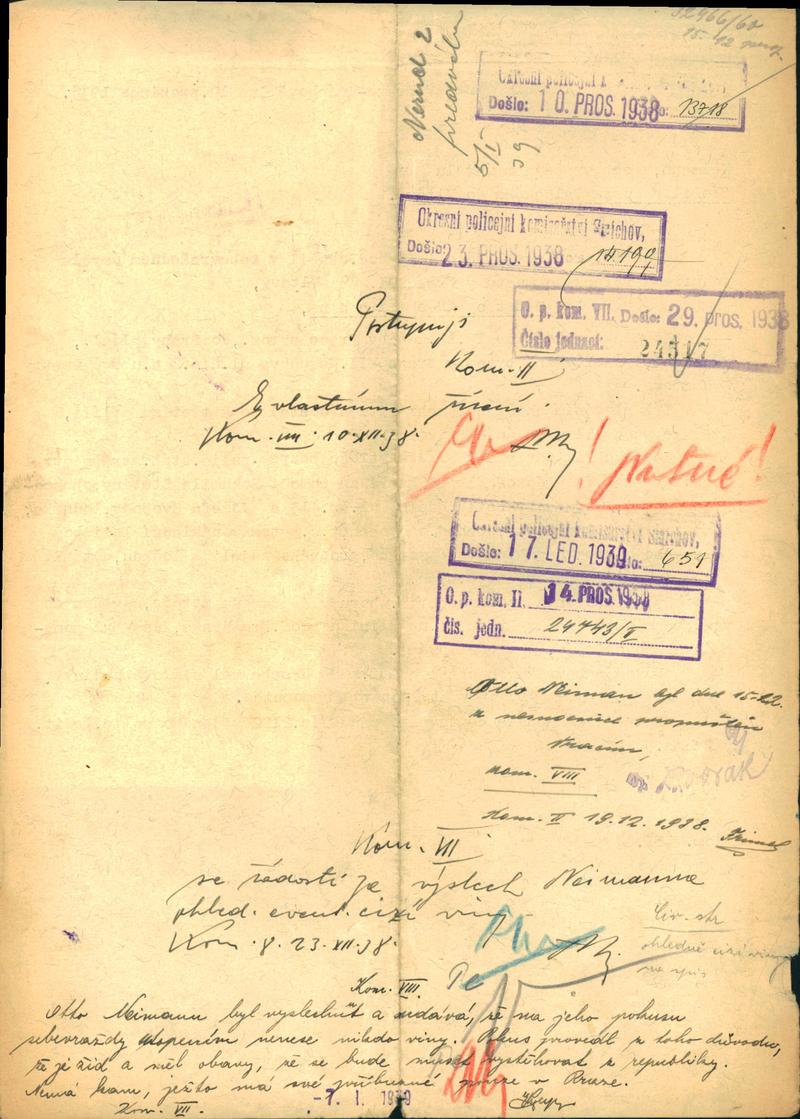 32466/60
15.12
Nemá 2
5/I
39
Okresní policejní k
Došlo: 10. PROS. 1938 13718
Okresní policejní komisařství Smíchov,
Došlo: 23. PROS. 1938 14.199
O. p. kom. VII. Došlo: 29. pros. 1938
Číslo jednací: 24317
Postupuji
Kom. II
K vlastnímu řízení.
Kom. VIII. 10.XII.38.
! Nutné!
Okresní policejní komisařství Smíchov,
Došlo: 17. LED. 1939 651
O. p. kom. II. 14. PROS. 1938
čís. jedn. 24443/II
Otto Neiman byl dne 15.12.
z nemocnice propuštěn
Vracím,
kom. VIII
Dvořák
Kom. II 19.12.1938.
Kom. VII
se žádostí za výslech Neimanna
ohled. event. cizí viny
Kom. 8. 23.XII.38.
ohledně cizí viny
Kom. VIII.
Otto Neimann byl vyslechnut a udává, že na jeho pokusu
sebevraždy utopením nenese nikdo viny. Pokus provedl z toho důvodu,
že je žid a měl obavy, že se bude muset vystěhovat z republiky.
Nemá kam, ježto má své příbuzné pouze v Praze.
Kom. VII. -7. I. 1939